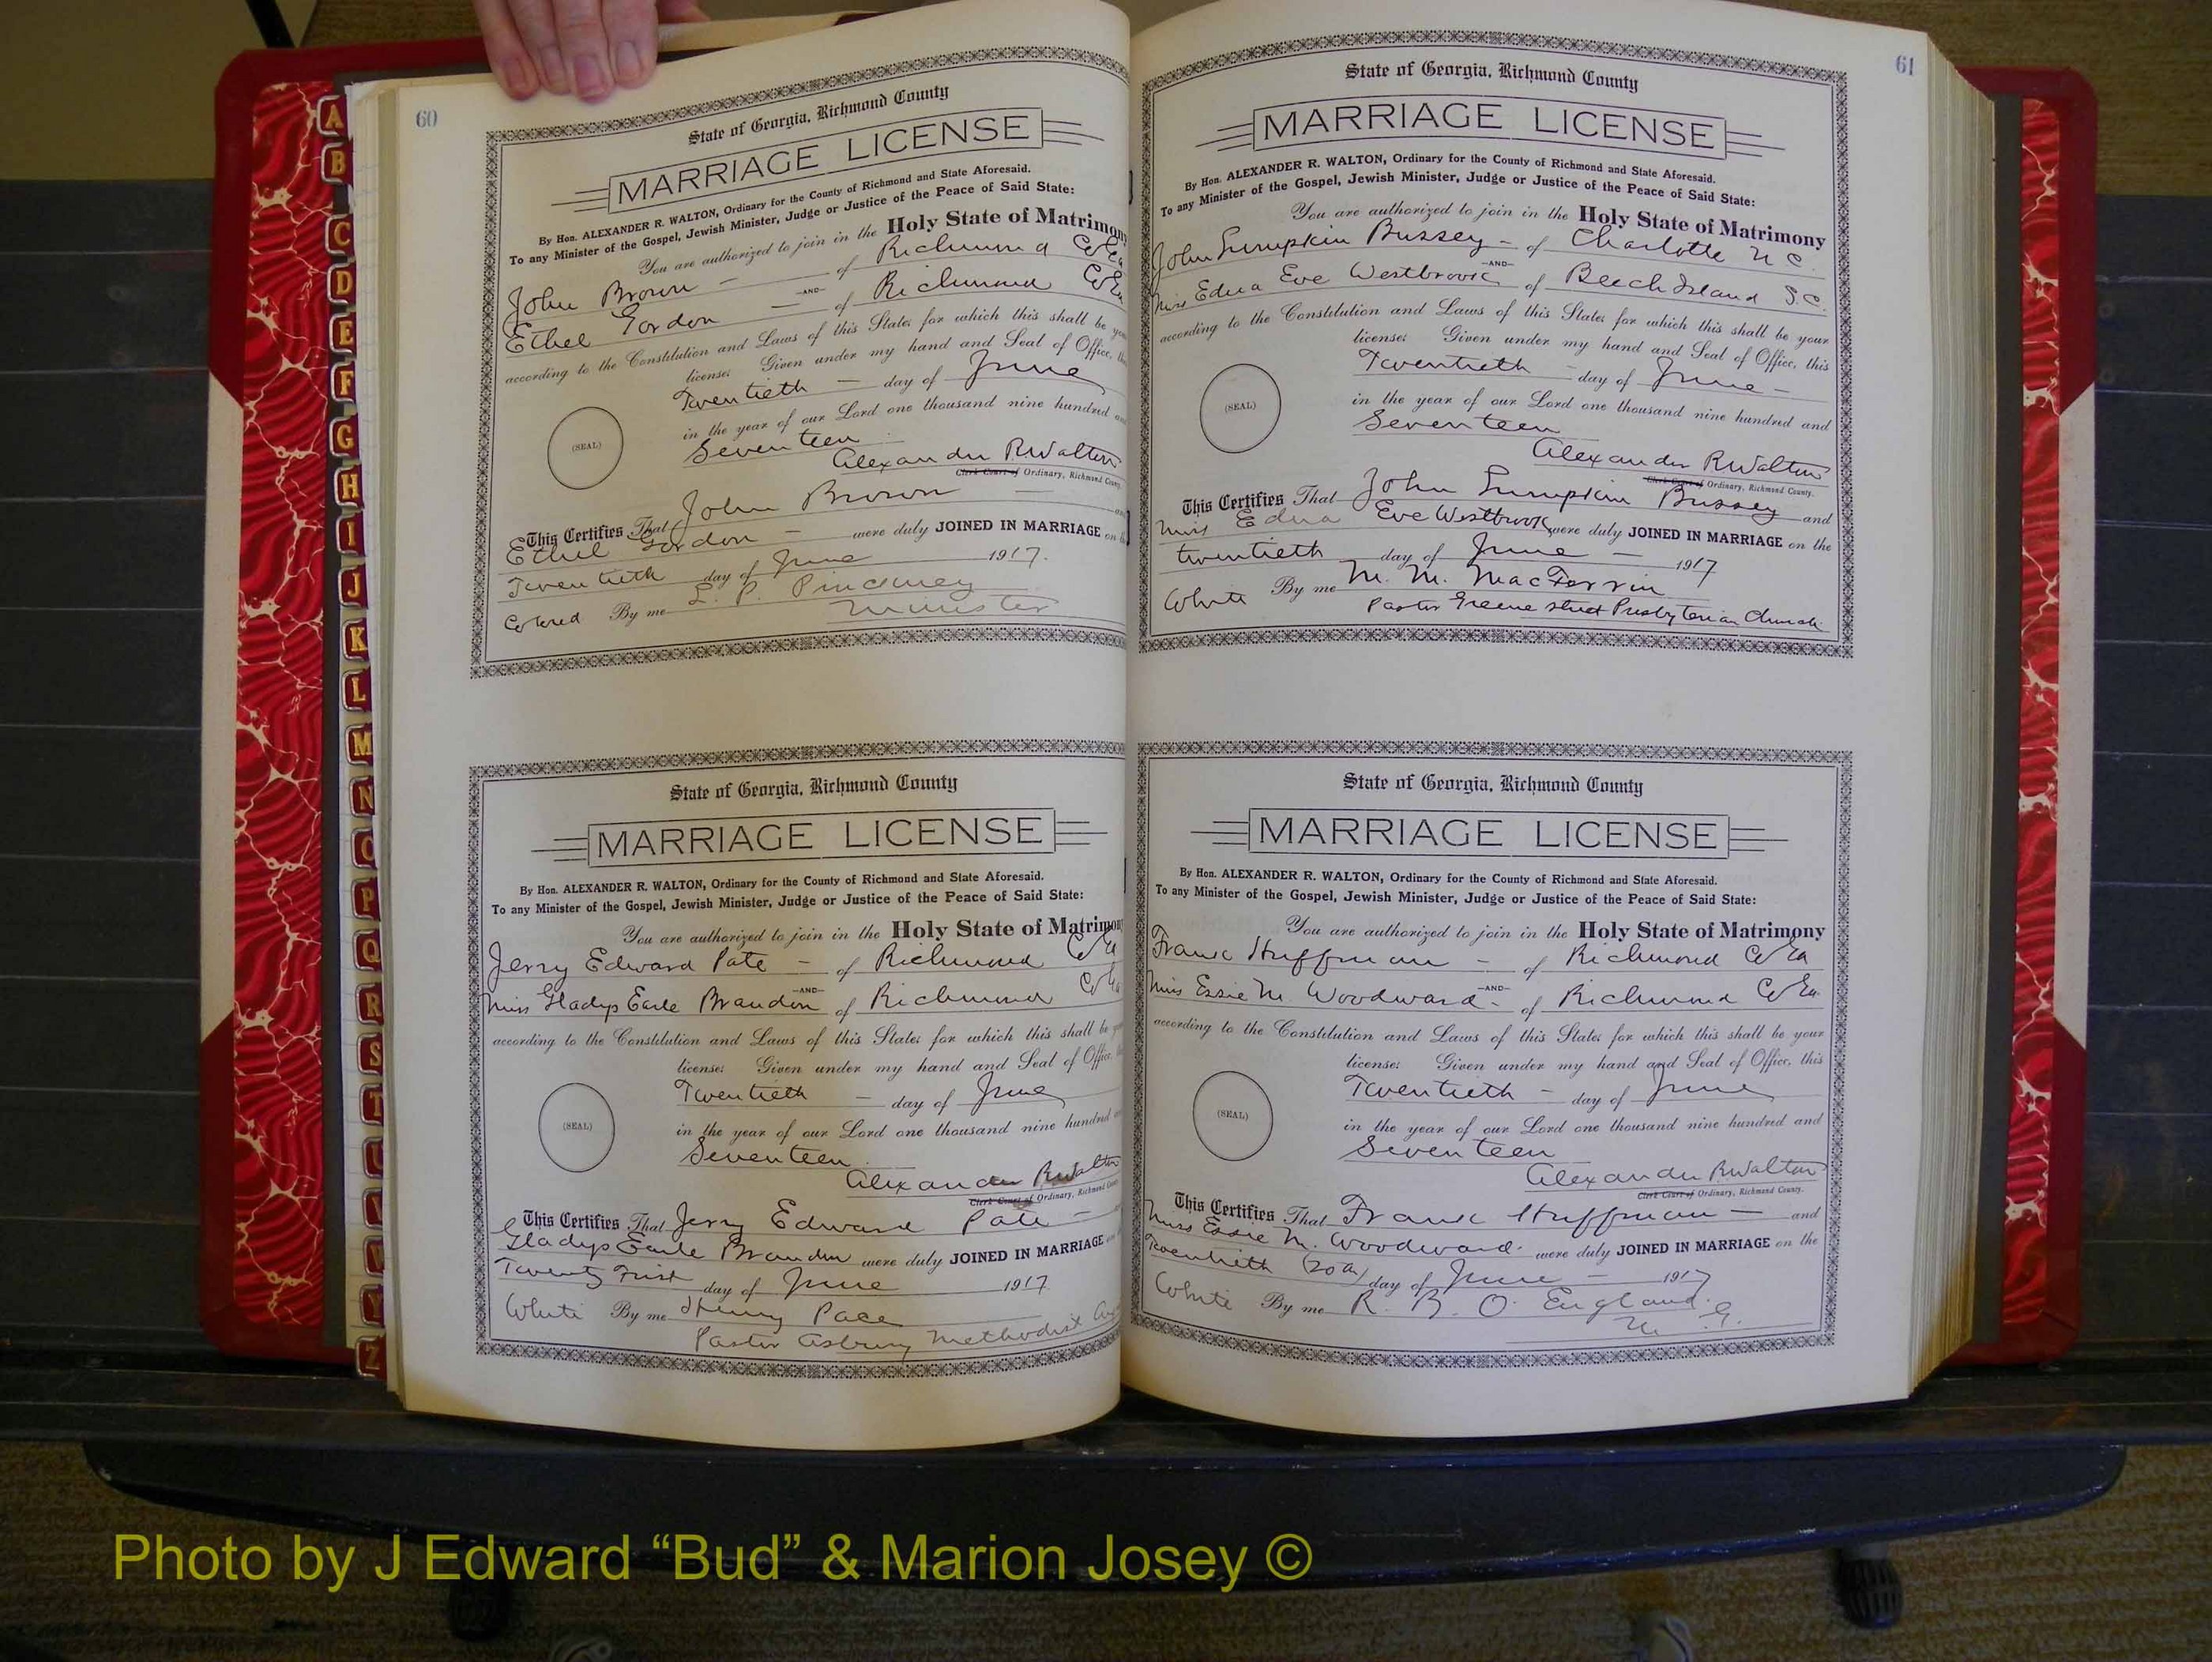 60
State of Georgia, Richmond County
MARRIAGE LICENSE
By Hon. ALEXANDER R. WALTON, Ordinary for the County of Richmond and State Aforesaid.
To any Minister of the Gospel, Jewish Minister, Judge or Justice of the Peace of Said State:
You are authorized to join in the Holy State of Matrimony
John Brown - of Richmond Co Ga
-AND-
Ethel Gordon - of Richmond Co Ga
according to the Constitution and Laws of this State; for which this shall be your
license: Given under my hand and Seal of Office, this
(SEAL)
Twentieth - day of June
in the year of our Lord one thousand nine hundred and
Seventeen
Alexander R Walton
Clerk Court of Ordinary, Richmond County.
This Certifies That John Brown
Ethel Gordon - were duly JOINED IN MARRIAGE on the
Twentieth day of June 1917.
Colored By me L. P. Pinckney
Minister
State of Georgia, Richmond County
MARRIAGE LICENSE
By Hon. ALEXANDER R. WALTON, Ordinary for the County of Richmond and State Aforesaid.
To any Minister of the Gospel, Jewish Minister, Judge or Justice of the Peace of Said State:
You are authorized to join in the Holy State of Matrimony
Jerry Edward Pate - of Richmond Co Ga
-AND-
Miss Gladys Earle Brandon of Richmond Co Ga
according to the Constitution and Laws of this State; for which this shall be your
license: Given under my hand and Seal of Office, this
(SEAL)
Twentieth - day of June
in the year of our Lord one thousand nine hundred and
Seventeen
Alexander R Walton
Clerk Court of Ordinary, Richmond County.
This Certifies That Jerry Edward Pate -
Gladys Earle Brandon were duly JOINED IN MARRIAGE on
Twenty First day of June 1917
White By me Henry Pace
Pastor Asbury Methodist
61
State of Georgia, Richmond County
MARRIAGE LICENSE
By Hon. ALEXANDER R. WALTON, Ordinary for the County of Richmond and State Aforesaid.
To any Minister of the Gospel, Jewish Minister, Judge or Justice of the Peace of Said State:
You are authorized to join in the Holy State of Matrimony
John Lumpkin Bussey - of Charlotte N C.
-AND-
Miss Edna Eve Westbrook of Beech Island S.C.
according to the Constitution and Laws of this State; for which this shall be your
license: Given under my hand and Seal of Office, this
(SEAL)
Twentieth - day of June -
in the year of our Lord one thousand nine hundred and
Seventeen
Alexander R Walton
Clerk Court of Ordinary, Richmond County.
This Certifies That John Lumpkin Bussey and
Miss Edna Eve Westbrook were duly JOINED IN MARRIAGE on the
twentieth day of June - 1917
White By me M. M. MacFerrin
Pastor Greene Street Presbyterian Church
State of Georgia, Richmond County
MARRIAGE LICENSE
By Hon. ALEXANDER R. WALTON, Ordinary for the County of Richmond and State Aforesaid.
To any Minister of the Gospel, Jewish Minister, Judge or Justice of the Peace of Said State:
You are authorized to join in the Holy State of Matrimony
Frank Huffman - of Richmond Co Ga
-AND-
Miss Essie M. Woodward - of Richmond Co Ga.
according to the Constitution and Laws of this State; for which this shall be your
license: Given under my hand and Seal of Office, this
(SEAL)
Twentieth - day of June
in the year of our Lord one thousand nine hundred and
Seventeen
Alexander R Walton
Clerk Court of Ordinary, Richmond County.
This Certifies That Frank Huffman - and
Miss Essie M. Woodward. were duly JOINED IN MARRIAGE on the
Twentieth (20th) day of June - 1917
White By me R. B. O. England.
M. G.
A
B
C
D
E
F
G
H
I
J
K
L
M
N
O
P
Q
R
S
T
U
V
W
Y
Z
Photo by J Edward “Bud” & Marion Josey ©